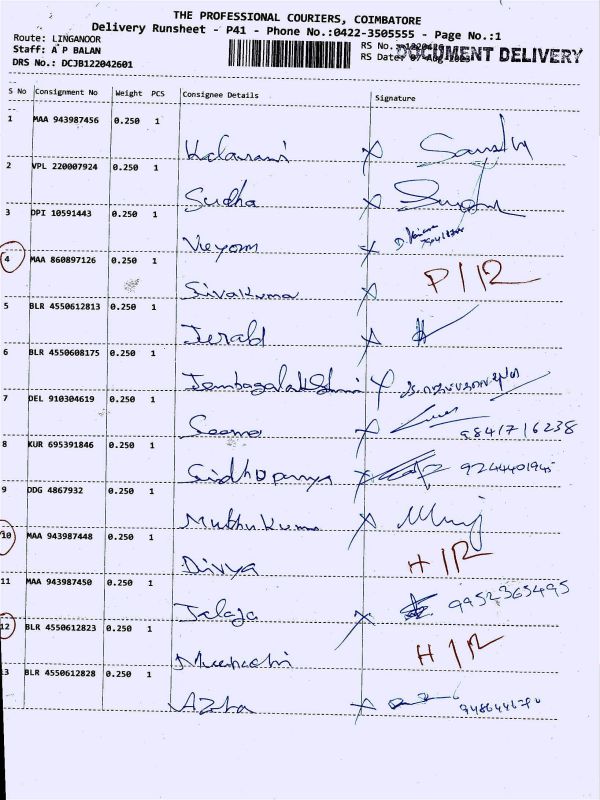 THE PROFESSIONAL COURIERS, COIMBATORE
Delivery Runsheet - P41 - Phone No.:0422-3505555 - Page No.:1
Route: LINGANOOR
Staff: A P BALAN
DRS No.: DCJB122042601
RS No.:
RS Date: 07-Aug-2023
DOCUMENT DELIVERY
S No Consignment No Weight PCS Consignee Details Signature
1 MAA 943987456 0.250 1 Kalavani
2 VPL 220007924 0.250 1 Sudha
3 DPI 10591443 0.250 1
4 MAA 860897126 0.250 1 Sivakuma
5 BLR 4550612813 0.250 1 Jerald
6 BLR 4550608175 0.250 1
7 DEL 910304619 0.250 1 Seema 9841716238
8 KUR 695391846 0.250 1 9244401945
9 DDG 4867932 0.250 1 Muthukuma
10 MAA 943987448 0.250 1 Divya
11 MAA 943987450 0.250 1 Jalaja 9952365495
12 BLR 4550612823 0.250 1
13 BLR 4550612828 0.250 1